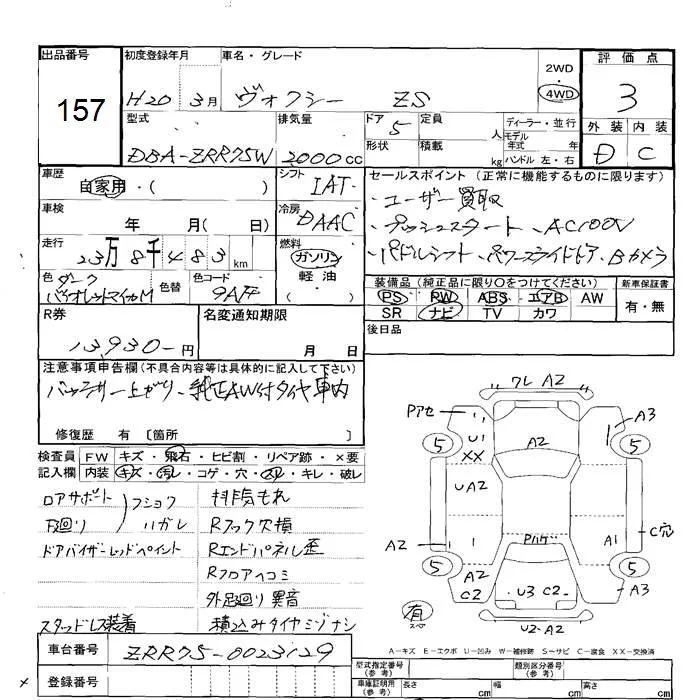 出品番号 初度登録年月 車名・グレード 2WD 評価点
157 H20 3月 ヴォクシー ZS 4WD 3
型式 排気量 ドア 5 定員 人 ディーラー・並行 外装 内装
DBA-ZRR75W 2000cc 形状 積載 kg モデル年式 年 ハンドル 左・右 D C
車歴 自家用・( ) シフト IAT セールスポイント(正常に機能するものに限ります)
・ユーザー買取
車検 年 月( 日) 冷房 DAAC ・プッシュスタート ・AC100V
走行 23万8千483km 燃料 ガソリン 軽油 ( ) ・パドルシフト・パワースライドドア、Bカメラ
色 ダークバイオレットマイカM 色替 色コード 9AF
装備品(純正品に限り○をつけてください) 新車保証書
PS RW ABS エアB AW 有・無
SR ナビ TV カワ
R券 13,930-円 名変通知期限 月 日 後日品
注意事項申告欄(不具合内容等は具体的に記入して下さい)
バッテリー上がり、純正AW付タイヤ車内
修復歴 有〔箇所 〕
検査員 FW キズ・飛石・ヒビ割・リペア跡・×要
記入欄 内装 キズ・汚レ・コゲ・穴・スレ・キレ・破レ
ロアサポート フショク 排気もれ
下廻り ハガレ Rフック欠損
ドアバイザーレッドペイント Rエンドパネル歪
Rフロアヘコミ
外足廻り異音
スタッドレス装着 積込みタイヤミゾナシ
ワレ A2
Pアセ A3
5 U1 XX A2 5
UA2
A2 Pハゲ A1 C穴
5 A2 C2 U3 C2 5 A3
有 スペア U2-A2
A-キズ E-エクボ U-凹み W-補修跡 S-サビ C-腐食 XX-交換済
車台番号 ZRR75-0023129
登録番号
型式指定番号(参考) 類別区分番号(参考)
車庫証明用(参考) 長さ cm 幅 cm 高さ cm